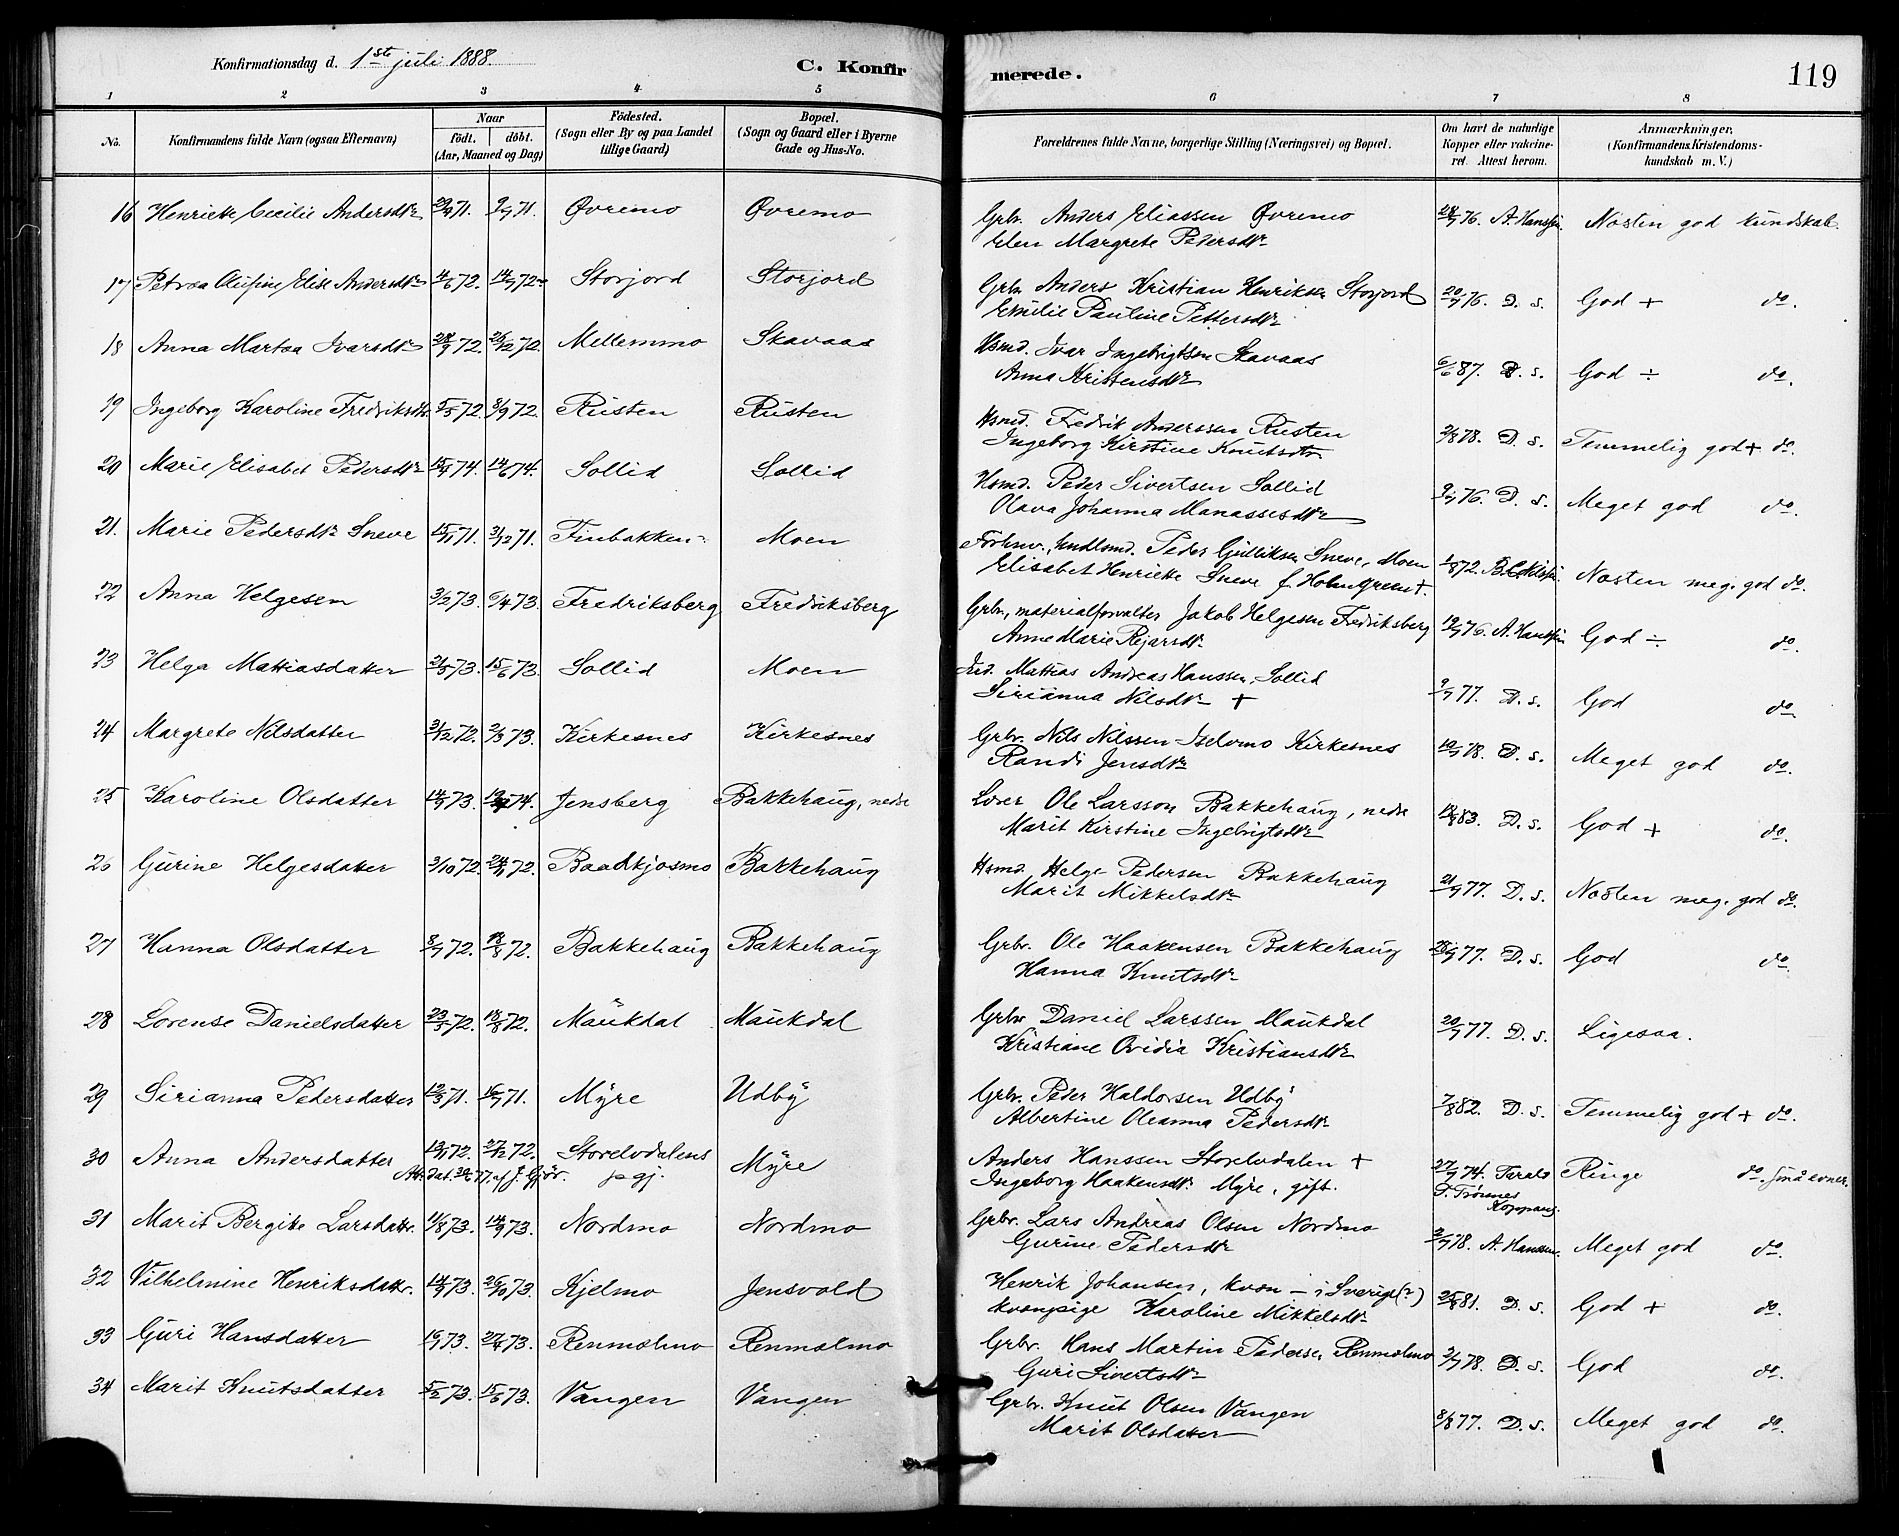 Konfirmationsdag d. 1ste juli 1888. C. Konfirmerede. 119
1 2 3 4 5 6 7 8
No. Konfirmandens fulde Navn (ogsaa Efternavn) Naar födt. döbt. (Aar, Maaned og Dag) Födested. (Sogn eller By og paa Landet tillige Gaard) Bopæl. (Sogn og Gaard eller i Byerne Gade og Hus-No.) Forældrenes fulde Navne, borgerlige Stilling (Næringsvei) og Bopæl. Om havt de naturlige Kopper eller vakcineret. Attest herom. Anmærkninger, (Konfirmandens Kristendomskundskab m. V.)
16 Henriette Cecilie Andersdtr 71. 9/7 71. Øvremo Øvremo Grbr. Anders Eliassen Øvremo 76. A. Hanssen. Næsten god kundskab
Elen Margrete Pedersdtr
17 Petrea Olufine Elise Andersdtr 4/6 72. 14/7 72. Storjord Storjord Grbr Anders Kristian Henriksen Storjord 20/7 76. D. s. God + do.
Emilie Pauline Pettersdtr
18 Anna Martea Ivarsdtr 28/9 72. 26/12 72. Mellemmo Skavaas Hsmd. Ivar Ingebrigtsen Skavaas 6/6 87. D. s. God ÷ do.
Anna Kristensdtr
19 Ingeborg Karoline Fredriksdtr 5/5 72. 8/9 72. Rusten Rusten Hsmd. Fredrik Anderssen Rusten 2/8 78. D. s. Temmelig god + do.
Ingeborg Kirstine Knutsdtr.
20 Marie Elisabet Pedersdtr 15/4 74. 14/6 74. Sollid Sollid Hsmd. Peder Sivertsen Sollid 9/7 76. D. s. Meget god do.
Olava Johanna Manassesdtr
21. Marie Pedersdtr Sneve 15/1 71. 3/12 71. Finbakken Moen Forhenv. Peder Gulliksen Sneve, Moen 1/8 72. Næsten meg. god do.
Elisabet Henriette Sneve f. Holmgreen +.
22 Anna Helgesen 3/2 73. 6/4 73. Fredriksberg Fredriksberg Grbr., materialforvalter Jakob Helgesen Fredriksberg 19/7 76. A. Hanssen God ÷ do.
Anne Marie Rejarsdtr
23 Helga Mattiasdatter 2/5 73. 15/6 73. Sollid Moen Ind. Mattias Andreas Hanssen, Sollid 9/7 77. D. s. God do.
Sirianna Nilsdtr +
24 Margrete Nilsdatter 3/12 72. 2/3 73. Kirkesnes Kirkesnes Grbr. Nils Nilssen Iselvmo Kirkesnes 19/7 78. D. s. Meget god do.
Randi Jensdtr
25 Karoline Olsdatter 14/9 73. 74. Jensberg Bakkehaug, nedre Ole Larsson Bakkehaug, nedre 18/8 83. D. s. God + do.
Marit Kirstine Ingebrigtsdtr
26 Gurine Helgesdatter 3/10 72. 24/11 72. Baadkjosmo Bakkehaug Hsmd. Helge Pedersen Bakkehaug 21/9 77. D. s. Næsten meg. god do.
Marit Mikkelsdtr
27 Hanna Olsdatter 8/7 72. 18/8 72. Bakkehaug Bakkehaug Grbr. Ole Haakensen Bakkehaug 28/9 77. D. s. God do.
Hanna Knutsdtr
28 Lorense Danielsdatter 23/5 72. 18/8 72. Maukdal Maukdal Grbr Daniel Larssen, Maukdal 20/7 77. D. s. Ligesaa.
Kristiane Ovidia Kristiansdtr
29 Sirianna Pedersdatter 12/5 71. 16/7 71. Myre Udby Grbr. Peder Haldorsen Udby 7/8 82. D. s. Temmelig god + do.
Albertine Oleanna Pedersdtr
30 Anna Andersdatter 13/11 72. 27/12 72. Storelvdalens Myre Anders Hanssen Storelvdalen + 27/9 74. Ringe do. små evner.
p gj. Ingeborg Haakensdtr Myre, gift. Koppang.
31 Marit Bergitte Larsdatter. 11/8 73. 14/9 73. Nordmo Nordmo Grbr. Lars Andreas Olsen Nordmo 78. A. Hanssen. Meget god do.
Gurine Pedersdtr
32 Vilhelmine Henriksdatter. 14/9 73. 26/10 73. Kjelmo Jensvold Henrik Johansen, kvæn – i Sverige (?) 81. D. s. God + do.
kvænpige Karoline Mikkelsdtr
33 Guri Hansdatter 73. 27/4 73. Renmælmo Renmælmo Grbr. Hans Martin Pedersen Renmælmo 2/7 78. D. s. God do.
Guri Sivertsdtr
34 Marit Knutsdatter 5/2 73. 15/6 73. Vangen Vangen Grbr. Knut Olsen Vangen 8/8 77. D. s. Meget god do.
Marit Olsdatter